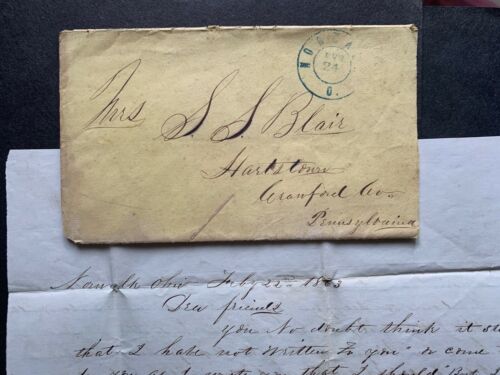 24
O.
Mrs
S. S Blair
Hartstown
Crawford Co.
Pennsylvania
Norwalk Ohio Feby 22nd 1863
Dear friends
you No doubt think it
that I have not written To you or come
to you as I wrote you that I should But